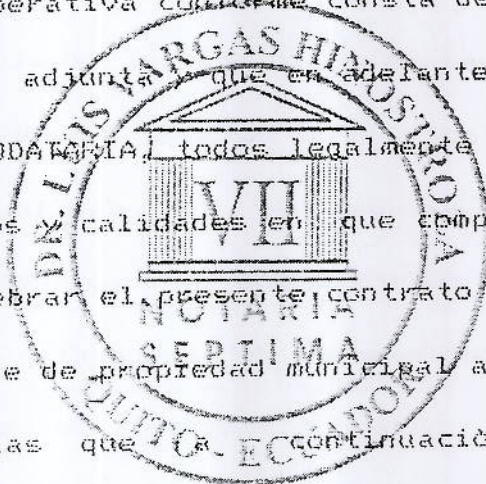 perativa conforme consta de
adjunta y que en adelante
ODATARIA, todos legalmente
os calidades en que comp
ebrar el presente contrato
e de propiedad municipal a
as que a continuaciòn
DR. LUIS VARGAS HINOSTROZA
VII
NOTARIA
SEPTIMA
QUITO - ECUADOR